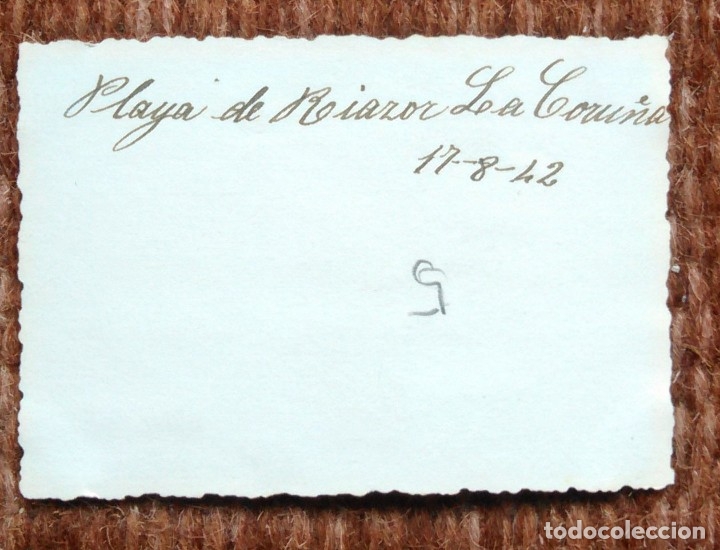 Playa de Riazor La Coruña
17-8-42
todocoleccion.net